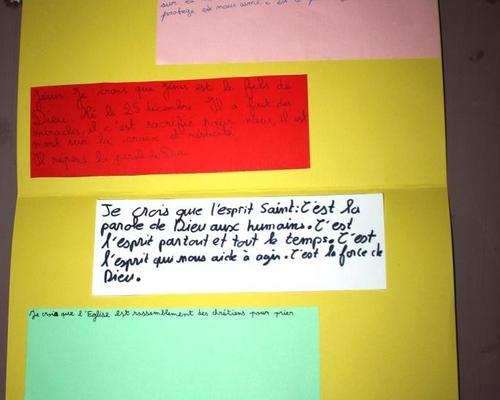 protège et nous aime c'est
Jésus Je crois que Jésus est le fils de
Dieu. Né le 25 décembre. Il a fait des
miracles, il c'est sacrifié pour nous, il est
mort sur la croix et
Il répens la parole de Dieu
Je crois que l'esprit Saint: C'est la
parole de Dieu aux humains. C'est
l'esprit partout et tout le temps. C'est
l'esprit qui nous aide à agir. C'est la force de
Dieu.
Je crois que l'Eglise est rassemblement des chrétiens pour prier